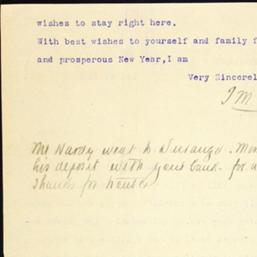 wishes to stay right here.
With best wishes to yourself and family f
and prosperous New Year, I am
Very Sincerel
Mr Hardy went to Durango. Mon
his deposit with your bank. for a
Thanks for